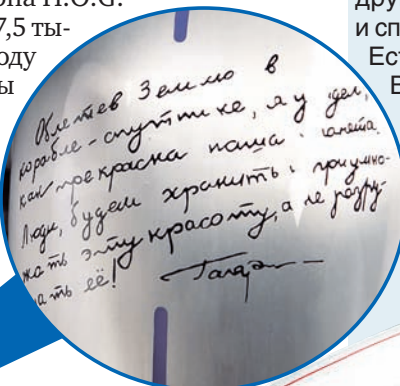 Н.О.G.
7,5 ты-
оду
ы
дру
и сп
Ест
Облетев Землю в
корабле-спутнике, я у дел,
как прекрасна наша  анета.
Люди, будем хранить и приумно-
жать эту красоту, а не разру-
ать её! Гагар